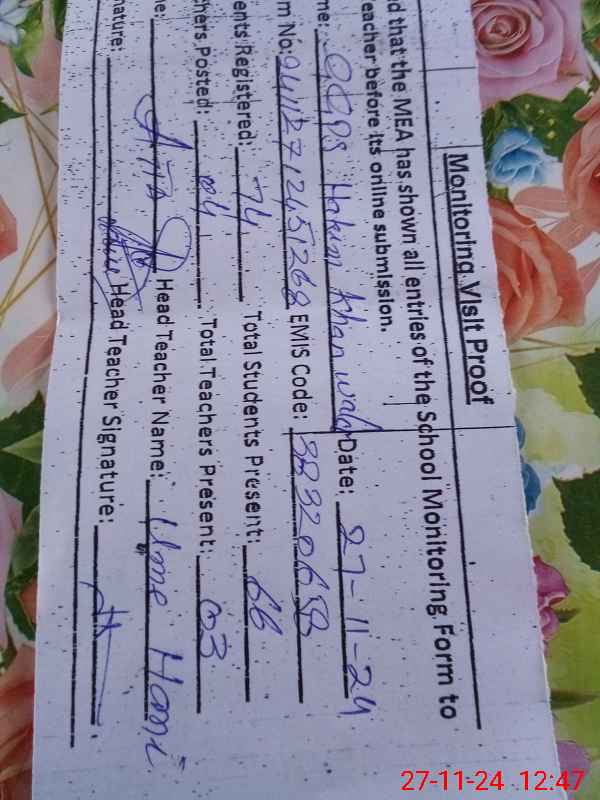 Monitoring Visit Proof
d that the MEA has shown all entries of the School Monitoring Form to
eacher before its online submission.
me: GGPS Hakim Khan wala Date: 27-11-24
m No: EMIS Code:
ents Registered: 74 Total Students Present: 66
hers Posted: 04 Total Teachers Present: 03
e: Head Teacher Name: Ume Hani
nature: Head Teacher Signature:
27-11-24 12:47